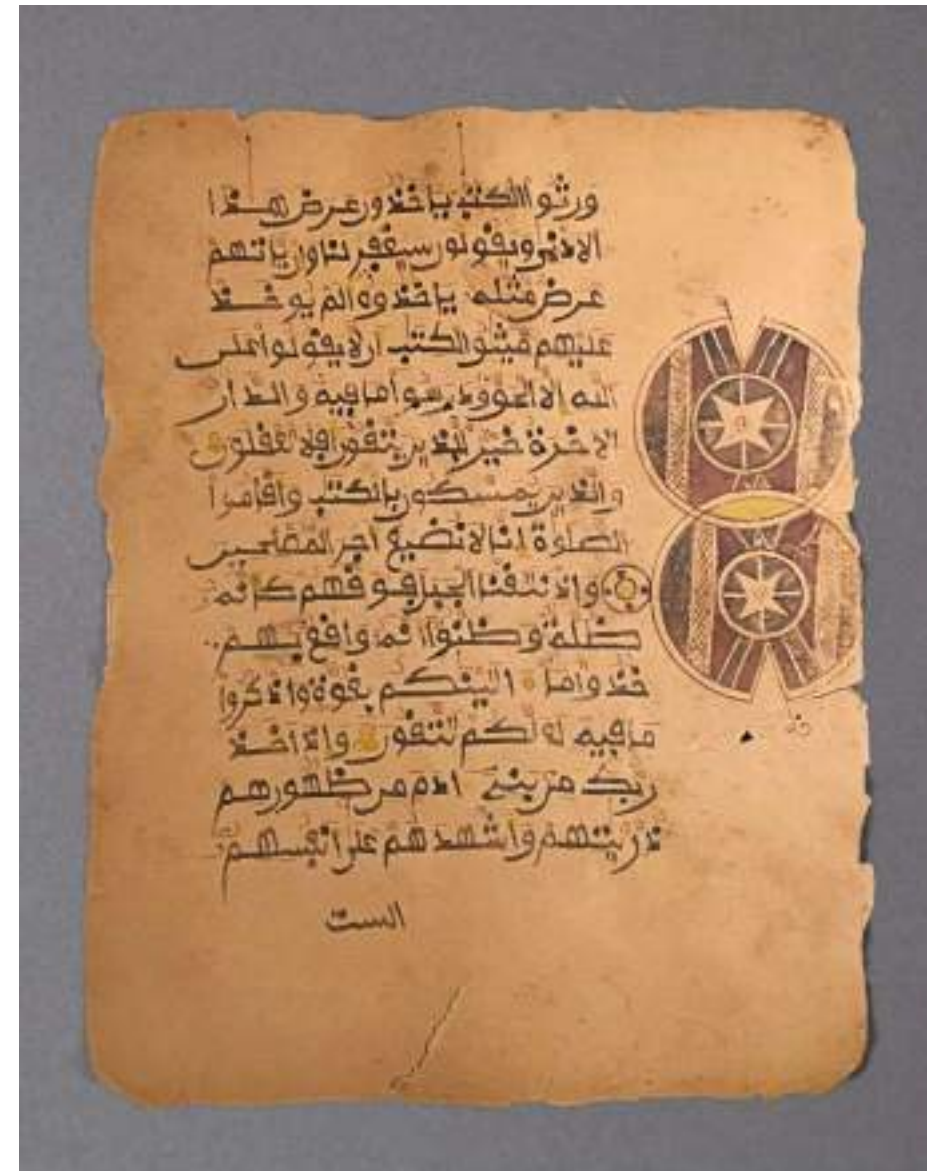 ورثوا الكتب ياخذون عرض هذا
الادنى ويقولون سيغفر لنا وان ياتهم
عرض مثله ياخذوه الم يوخذ
عليهم ميثق الكتب ان لا يقولوا على
الله الا الحق ودرسوا ما فيه والدار
الاخرة خير للذين يتقون افلا تعقلون
والذين يمسكون بالكتب واقاموا
الصلوة انا لا نضيع اجر المصلحين
واذ نتقنا الجبل فوقهم كانه
ظلة وظنوا انه واقع بهم
خذوا ما اتينكم بقوة واذكروا
ما فيه لعلكم تتقون واذ اخذ
ربك من بني ادم من ظهورهم
ذريتهم واشهدهم على انفسهم
الست